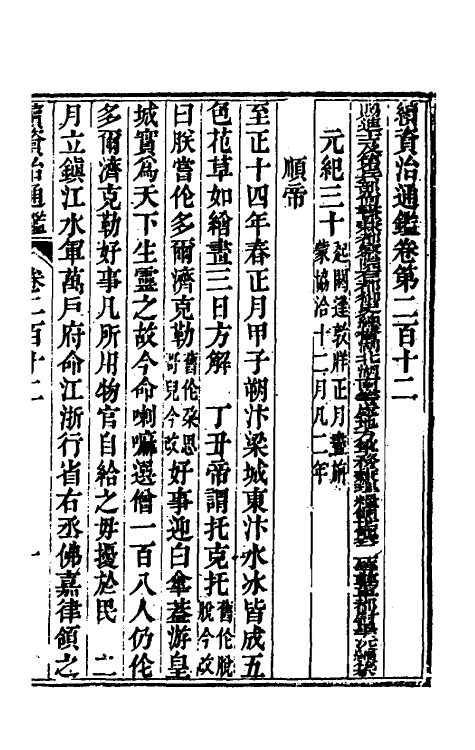 續資治通鑑卷第二百十二
元紀三十起閼逢敦牂正月盡旃蒙協洽十二月凡二年
順帝
至正十四年春正月甲子朔汴梁城東汴水冰皆成五
色花草如繪畫三日方解　丁丑帝謂托克托舊倫脫脫今改
曰朕嘗伦多爾濟克勒舊伦朶思哥兒今改好事迎白傘葢游皇
城實為天下生靈之故今命喇嘛選僧一百八人仍伦
多爾濟克勒好事凡所用物官自給之毋擾於民　二
月立鎮江水軍萬戸府命江浙行省右丞佛嘉律領之
續資治通鑑　卷二百十二　一